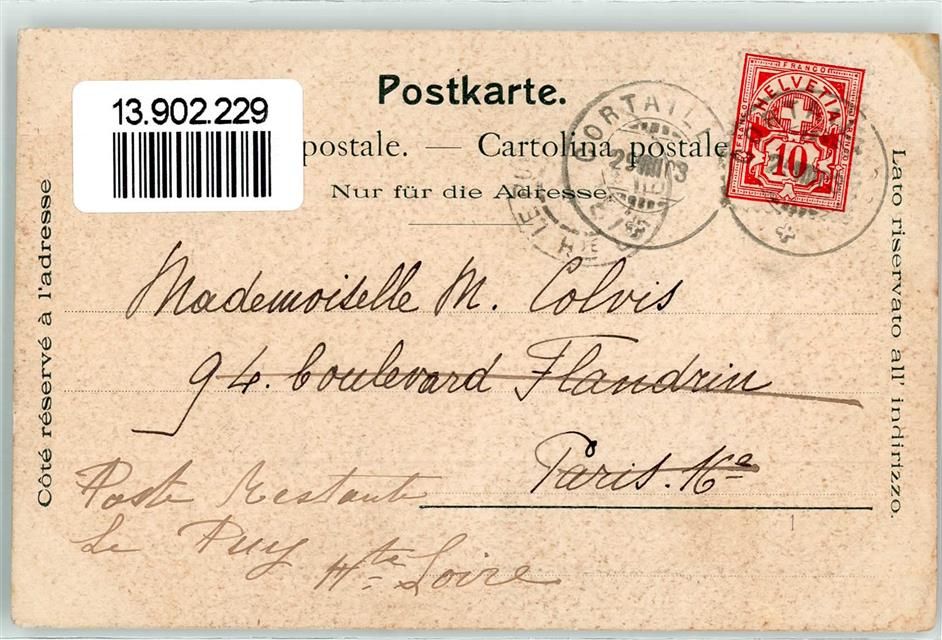 Postkarte.
13.902.229
postale. — Cartolina postale
Nur für die Adresse.
FRANCO
HELVETIA
10
CORTAILL
Mademoiselle M. Colvis
94. boulevard Flandrin
Paris.
Poste Restante
Le Puy Hte Loire
Côté réservé à l'adresse
Lato riservato all' indirizzo.